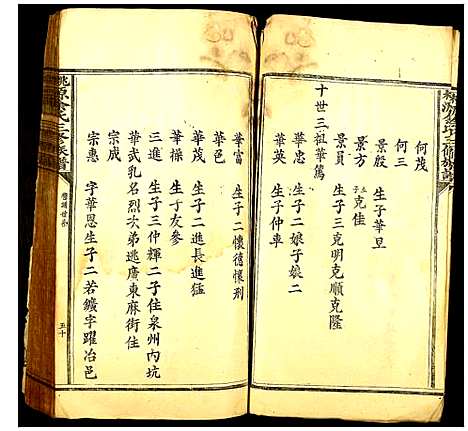 何茂
何三
景殷 生子華旦
景方 立子克佳
景員 生子三克明克順克隆
十世三祖華篤
華忠 生子二娘子娘二
華英 生子仲車
華富 生子二懷德懷刑
華邑
華茂 生子二進長進猛
華操 生丁友參
三進 生子三仲輝二子住泉州内坑
華武乳名烈次弟逃廣東麻街住
宗成
宗惠 字華恩生子二若鑛字躍冶邑
桃源
氏三修族譜
五十